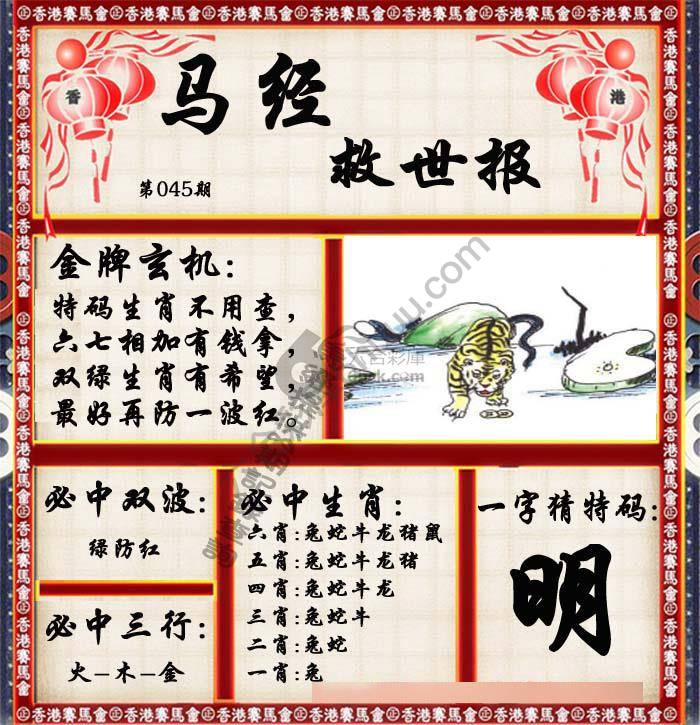 香港賽馬會
香
港
马经
救世报
第045期
金牌玄机:
特码生肖不用查,
六七相加有钱拿,
双绿生肖有希望,
最好再防一波红。
必中双波:
绿防红
必中三行:
火-木-金
必中生肖:
六肖:兔蛇牛龙猪鼠
五肖:兔蛇牛龙猪
四肖:兔蛇牛龙
三肖:兔蛇牛
二肖:兔蛇
一肖:兔
一字猜特码:
明